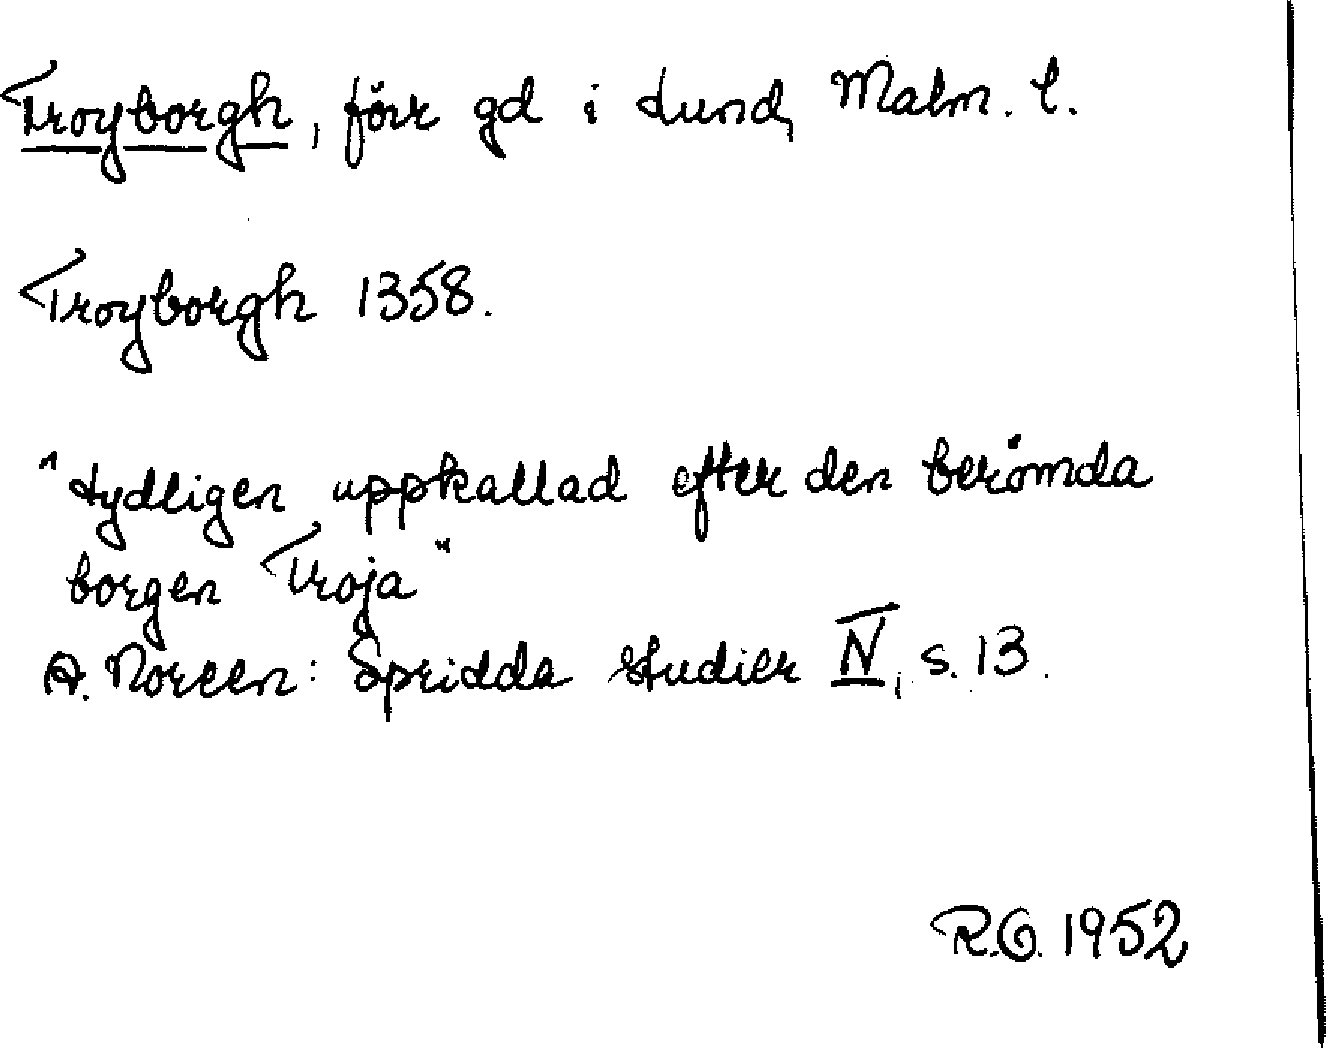 Troyborgh, förr gd i Lund, Malm. l.
Troyborgh 1358.
"tydligen uppkallad efter den berömda
borgen Troja"
A. Noreen: Spridda studier IV, s. 13.
R.G. 1952